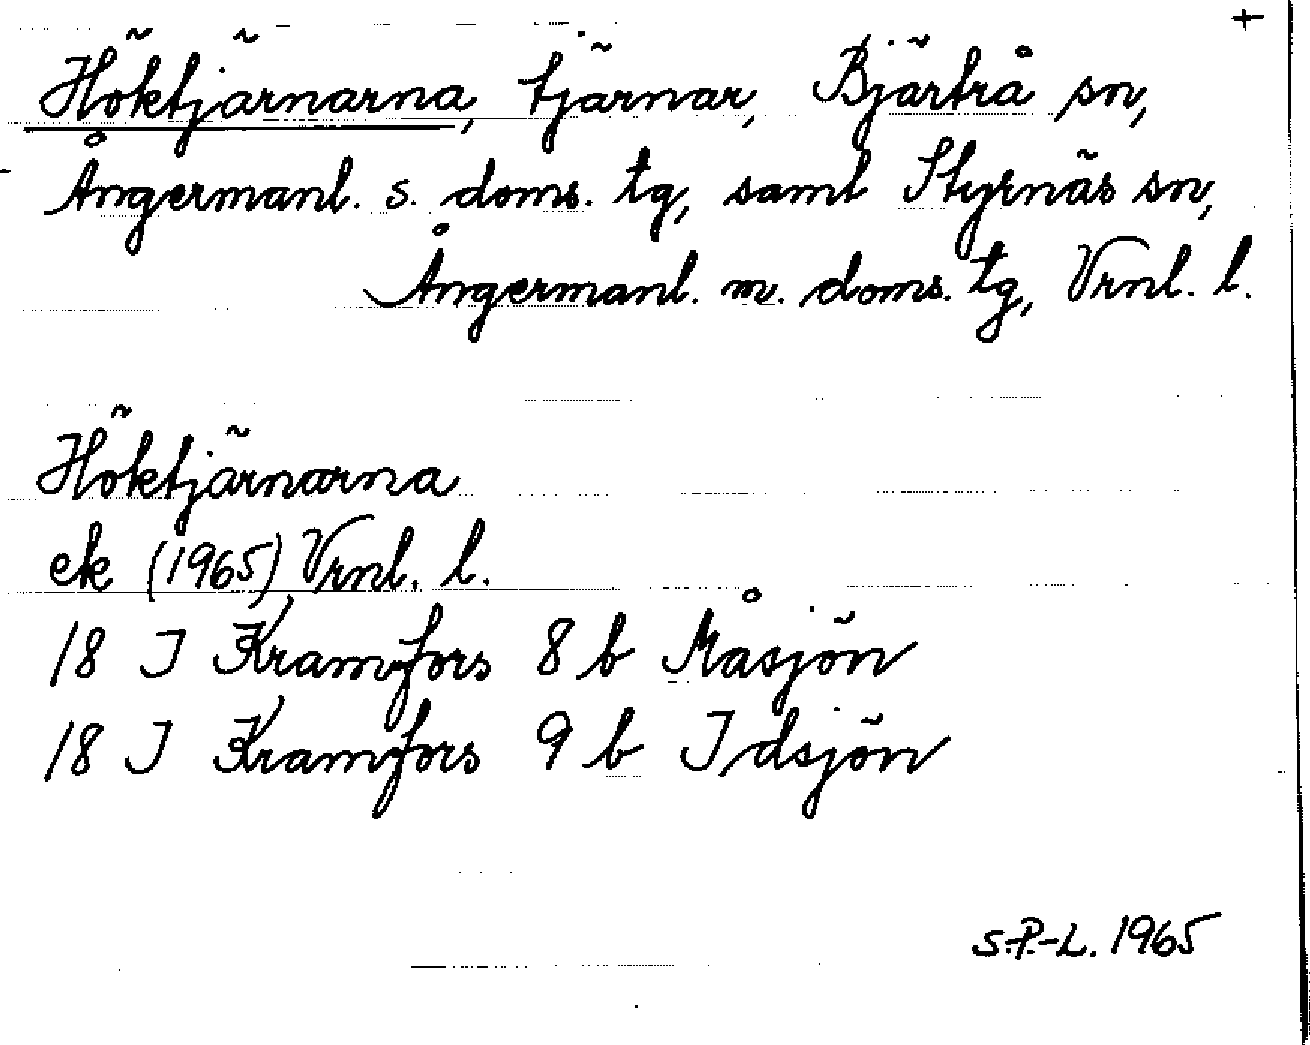 +
Höktjärnarna, tjärnar, Bjärtrå sn,
Ångermanl. s. doms. tg, samt Styrnäs sn,
Ångermanl. m. doms. tg, Vrnl. l.
Höktjärnarna
ek (1965) Vrnl. l.
18 I Kramfors 8 b Måsjön
18 I Kramfors 9 b Idsjön
S.P-L. 1965